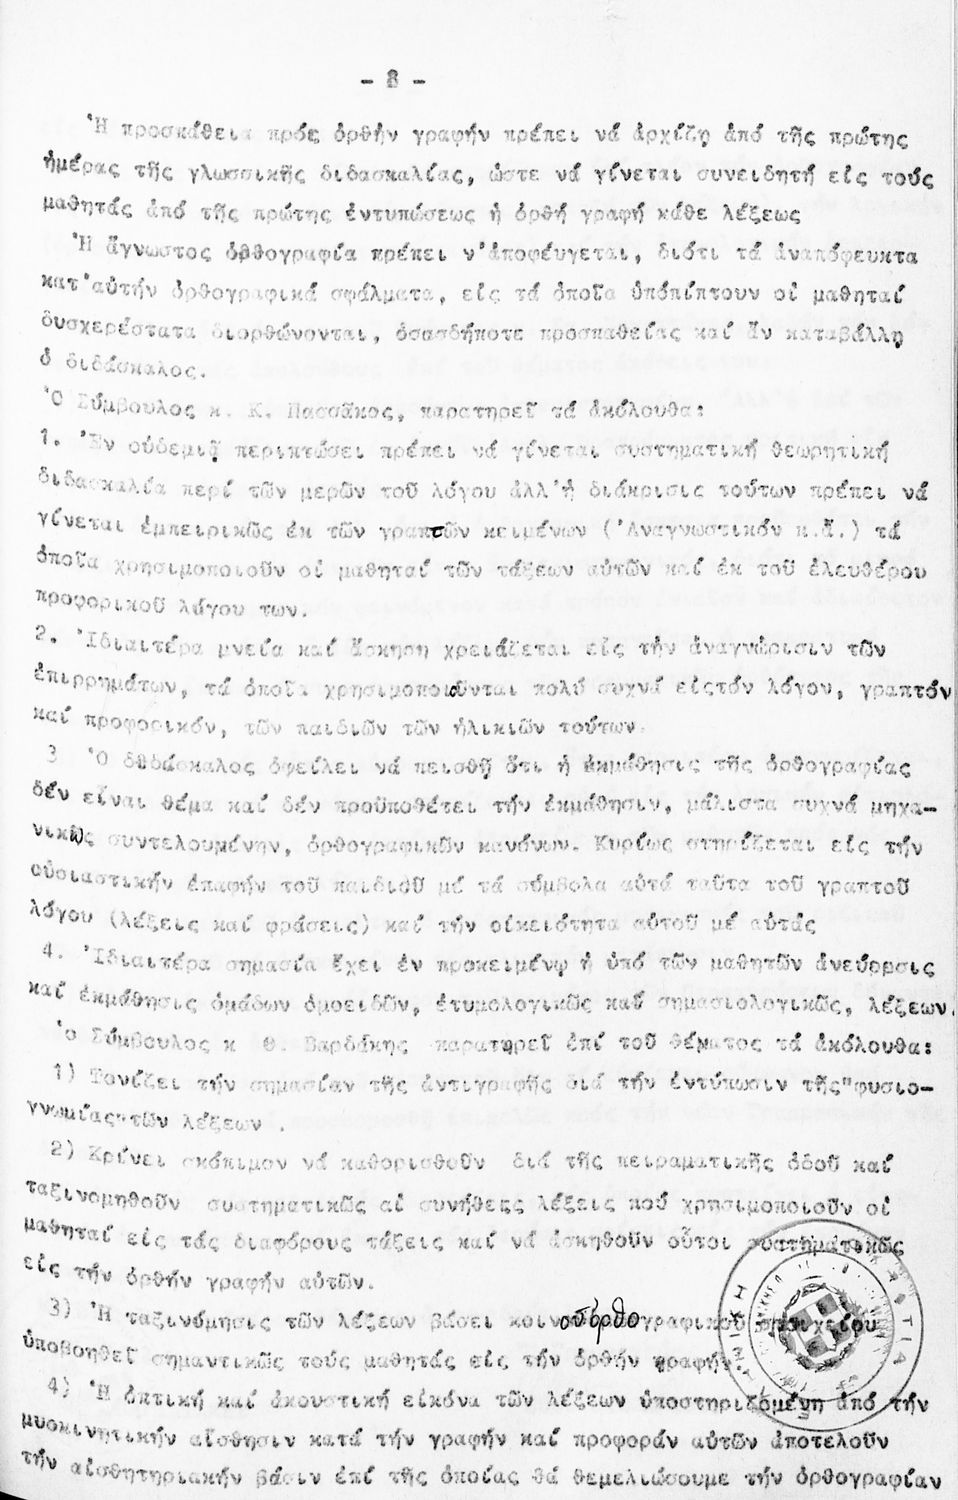 - 8 -
Ἡ προσπάθεια πρός ὀρθήν γραφήν πρέπει νά ἀρχίζῃ ἀπό τῆς πρώτης
ἡμέρας τῆς γλωσσικῆς διδασκαλίας, ὥστε νά γίνεται συνειδητή εἰς τούς
μαθητάς ἀπό τῆς πρώτης ἐντυπώσεως ἡ ὀρθή γραφή κάθε λέξεως
Ἡ ἄγνωστος ὀρθογραφία πρέπει ν'ἀποφεύγεται, διότι τά ἀναπόφευκτα
κατ'αὐτήν ὀρθογραφικά σφάλματα, εἰς τά ὁποῖα ὑπόπίπτουν οἱ μαθηταί
δυσχερέστατα διορθώνονται, ὁσασδήποτε προσπαθείας καί ἄν καταβάλλῃ
ὁ διδάσκαλος.
Ὁ Σύμβουλος κ. Κ. Πασσᾶκος, παρατηρεῖ τά ἀκόλουθα:
1. Ἐν οὐδεμιᾷ περιπτώσει πρέπει νά γίνεται συστηματική θεωρητική
διδασκαλία περί τῶν μερῶν τοῦ λόγου ἀλλ'ἡ διάκρισις τούτων πρέπει νά
γίνεται ἐμπειρικῶς ἐκ τῶν γραπτῶν κειμένων (Ἀναγνωστικόν κ.ἄ.) τά
ὁποῖα χρησιμοποιοῦν οἱ μαθηταί τῶν τάξεων αὐτῶν καί ἐκ τοῦ ἐλευθέρου
προφορικοῦ λόγου των.
2. Ἰδιαιτέρα μνεία καί ἄσκηση χρειάζεται εἰς τήν ἀναγνώρισιν τῶν
ἐπιρρημάτων, τά ὁποῖα χρησιμοποιοῦνται πολύ συχνά εἰςτόν λόγον, γραπτόν
καί προφορικόν, τῶν παιδιῶν τῶν ἡλικιῶν τούτων.
3 Ὁ διδάσκαλος ὀφείλει νά πεισθῇ ὅτι ἡ ἐκμάθησις τῆς ὀρθογραφίας
δέν εἶναι θέμα καί δέν προϋποθέτει τήν ἐκμάθησιν, μάλιστα συχνά μηχα-
νικῶς συντελουμένην, ὀρθογραφικῶν κανόνων. Κυρίως στηρίζεται εἰς τήν
οὐσιαστικήν ἐπαφήν τοῦ παιδιοῦ μέ τά σύμβολα αὐτά ταῦτα τοῦ γραπτοῦ
λόγου (λέξεις καί φράσεις) καί τήν οἰκειότητα αὐτοῦ μέ αὐτάς
4. Ἰδιαιτέρα σημασία ἔχει ἐν προκειμένῳ ἡ ὑπό τῶν μαθητῶν ἀνεύρεσις
καί ἐκμάθησις ὁμάδων ὁμοειδῶν, ἐτυμολογικῶς καί σημασιολογικῶς, λέξεων.
ὁ Σύμβουλος κ Θ. Βαρδάκης παρατηρεῖ ἐπί τοῦ θέματος τά ἀκόλουθα:
1) Τονίζει τήν σημασίαν τῆς ἀντιγραφῆς διά τήν ἐντύπωσιν τῆς"φυσιο-
γνωμίας"τῶν λέξεων .
2) Κρίνει σκόπιμον νά καθορισθοῦν διά τῆς πειραματικῆς ὁδοῦ καί
ταξινομηθοῦν συστηματικῶς αἱ συνήθεις λέξεις πού χρησιμοποιοῦν οἱ
μαθηταί εἰς τάς διαφόρους τάξεις καί νά ἀσκηθοῦν οὗτοι συστηματικῶς
εἰς τήν ὀρθήν γραφήν αὐτῶν.
3) Ἡ ταξινόμησις τῶν λέξεων βάσει κοινοῦ ὀρθογραφικοῦ στοιχείου
ὑποβοηθεῖ σημαντικῶς τούς μαθητάς εἰς τήν ὀρθήν γραφήν.
4) Ἡ ὀπτική καί ἀκουστική εἰκόνα τῶν λέξεων ὑποστηριζομένη ἀπό τήν
μυοκινητικήν αἴσθησιν κατά τήν γραφήν καί προφοράν αὐτῶν ἀποτελοῦν
τήν αἰσθητηριακήν βάσιν ἐπί τῆς ὁποίας θά θεμελιώσουμε τήν ὀρθογραφίαν